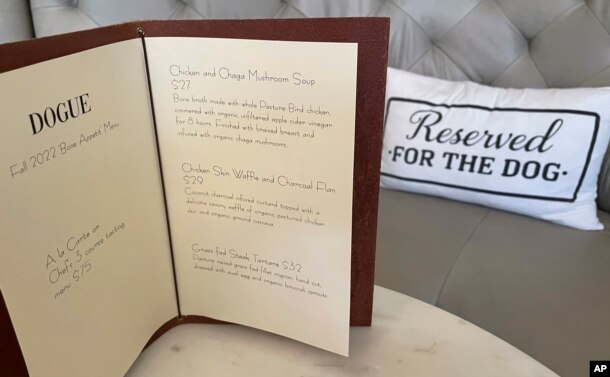 DOGUE
Fall 2022 "Bone Appetit" Menu
A la Carte or
Chef's 3 course tasting
menu $75
Chicken and Chaga Mushroom Soup
$27
Bone broth made with whole Pasture Bird chicken,
simmered with organic unfiltered apple cider vinegar
for 8 hours. Finished with braised breast and
infused with organic chaga mushrooms.
Chicken Skin Waffle and Charcoal Flan
$29
Coconut charcoal infused custard topped with a
delicate savory waffle of organic pastured chicken
skin and organic ground cassava.
Grass fed Steak Tartare $32
Pasture raised grass fed fillet mignon, hand cut,
dressed with quail egg and organic broccoli sprouts
Reserved
·FOR THE DOG·
AP